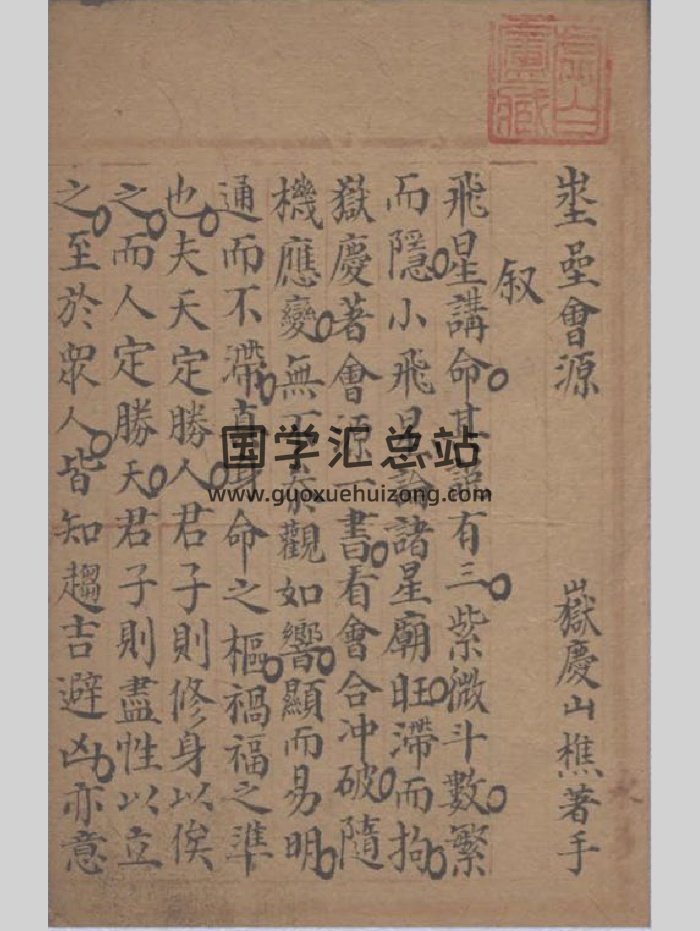 會源
嶽慶山樵著手
叙
飛星講命其說有三紫微斗數繁
而隱小飛星論諸星廟旺滯而拘
嶽慶著會源一書看會合冲破隨
機應變無不泰觀如響顯而易明
通而不滯真身命之樞禍福之準
也夫天定勝人君子則修身以俟
之而人定勝天君子則盡性以立
之至於眾人皆知趨吉避凶亦意
国学汇总站
www.guoxuehuizong.com